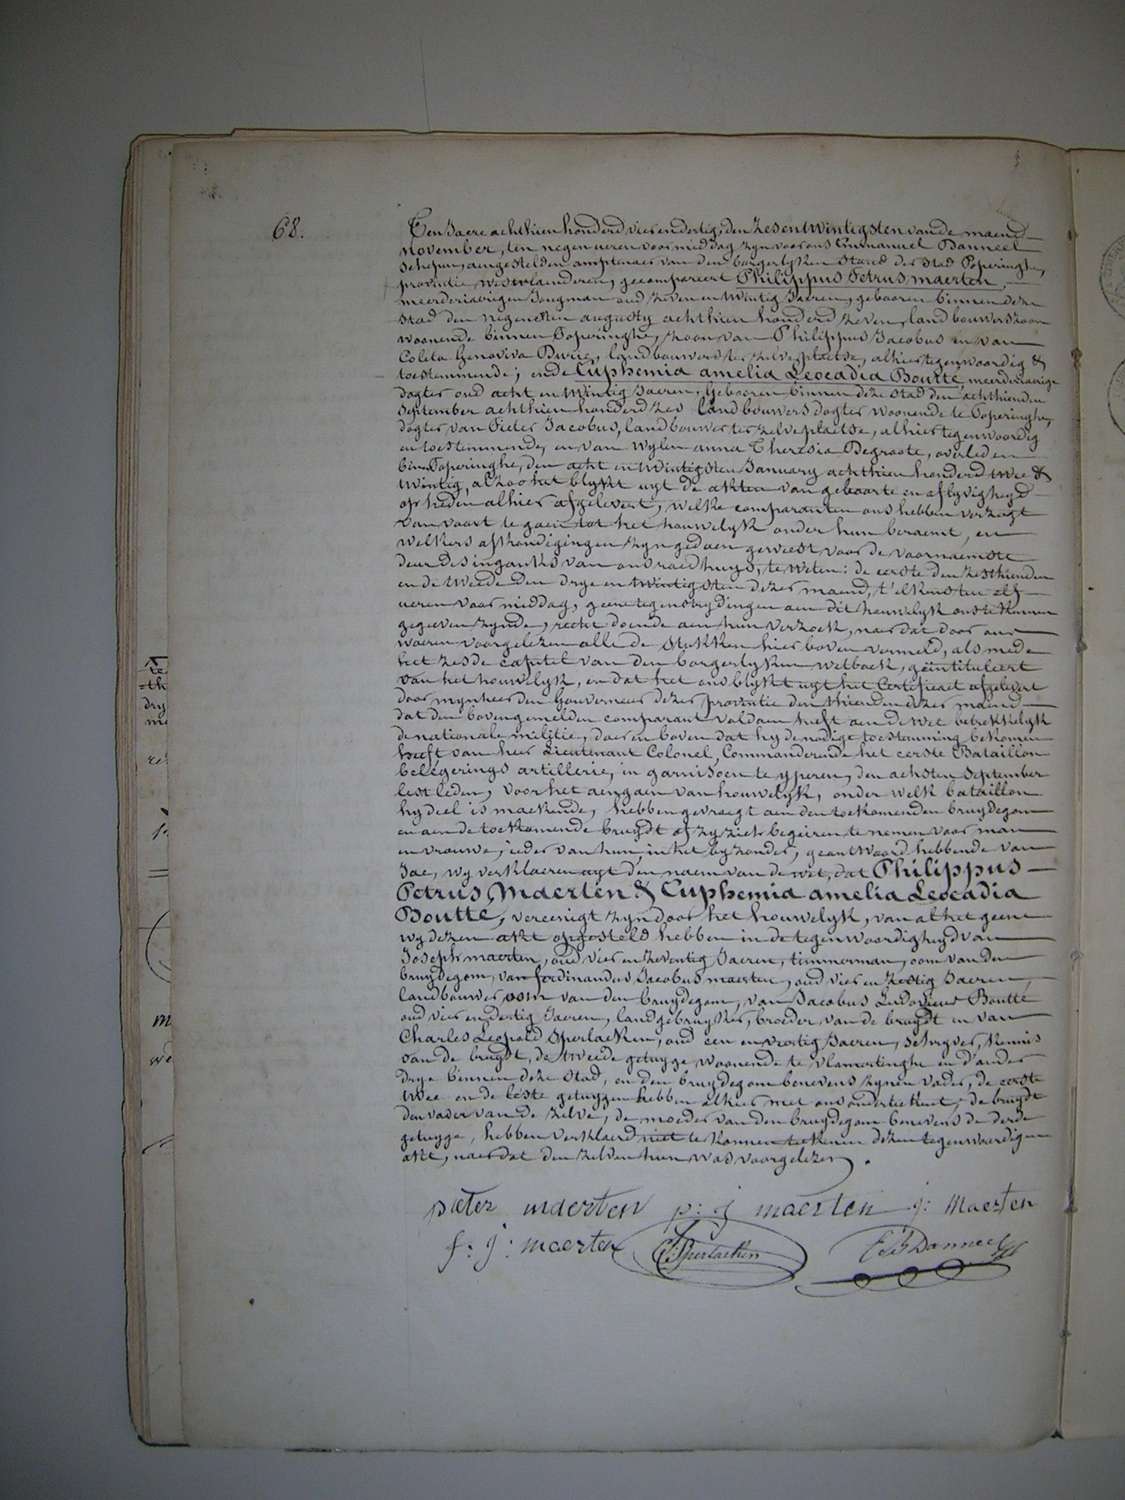 68.
Ten Jaere achthien honderd vier en dertig, den zes en twintigsten van de maend
November, ten negen ueren voor middag zyn voor ons Emmanuel Banneel
Schepen, aengestelden amptenaer van den borgerlyken Staed der Stad Poperinghe,
provintie Westvlaenderen, gecompareert Philippus Petrus maerten,
meerderjaerigen Jongman oud zeven en twintig Jaeren, gebooren binnen deze
Stad den negensten augusty achthien honderd zeven, landbouwerszoon
woonende binnen Poperinghe, zoon van Philippus Jacobus en van
Coleta Genoviva, landbouwers ter zelve plaetse, alhier tegenwoordig &
toestemmende; ende Euphemia amelia Leocadia Boutté, meerderjaerige
dogter oud acht en twintig Jaeren, Gebooren binnen deze Stad den achthienden
September achthien honderd zes landbouwers dogter woonende te Poperinghe,
dogter van Pieter Jacobus, landbouwer ter zelve plaetse, alhier tegenwoordig
en toestemmende, en van wylen anna Theresia Degroote, overleden
binn Poperinghe, den acht en twintigsten January achthien honderd twee &
twintig, alzoo het blykt uyt de akten van geboorte en aflyvigheyd
op heden alhier afgelevert, welke comparanten ons hebben verzogt
van voort te gaen tot het houwelyk onder hun beraemt, en
welkers afkondigingen zyn gedaen geweest voor de voornaemste
deur des ingangks van ons raedhuys, te weten: de eerste den zesthienden
en de tweede den drye en twintigsten dezer maend, t'elkensten elf
ueren voor middag, geene tegenstrydingen aen dit houwelyk ons te kennen
gegeeven zynde, recht doende aen hun verzoek, naer dat door ons
waeren voorgelezen alle de stukken hier boven vermeld, als mede
het zesde capitel van den borgerlyken wetboek, geïntituleert
van het houwelyk, en dat het ons blykt uyt het Certificaet afgelevert
door mynheer den Gouverneur dezer provintie den thienden dezer maend
dat den bovengemelden comparant voldaen heeft aen de wet betrekkelyk
de nationale militie, daer en boven dat hy de nodige toestemming bekomen
heeft van heer Lieutenant Colonel, Commanderende het eerste Bataillon
belegerings artillerie, in garnisoen te yperen, den achsten September
lest leden, voor het aengaen van houwelyk, onder welk bataillon
hy deel is maekende, hebben gevraegt aen den toekomenden bruydegom
en aen de toekomende bruydt of zy zich begeiren te nemen voor man
en vrouwe, ieder van hun, in het byzonder, geantwoord hebbende van
Jae, wy verklaeren uyt den naem van de wet, dat Philippus
Petrus Maerten & Euphemia amelia Leocadia
Boutté, vereenigt zyn door het houwelyk, van al het geene
wy dezen akt opgesteld hebben in de tegenwoordigheyd van
Joseph maerten, oud vier en zeventig Jaeren, timmerman, oom van den
bruydegom, van ferdinandus Jacobus maerten, oud vier en zestig Jaeren,
landbouwer oom van den bruydegom, van Jacobus Ludovicus Boutté
oud vier en dertig Jaeren, landgebruyker, broeder van de bruydt en van
Charles Leopold Sperlaeken, oud een en veertig Jaeren, schryver, kennis
van de bruydt, de tweede getuyge woonende te vlamertinghe en d'ander
drye binnen deze Stad, en den bruydegom benevens zynen vader, de eerste
twee en de leste getuygen hebben alhier met ons onderteekent, de bruydt
den vader van de zelve, de moeder van den bruydegom benevens de derde
getuyge, hebben verklaerd niet te konnen teekenen dezen tegenwoordigen
akt, naer dat den zelven hun was voorgelezen.
pieter maerten p: j maerten j: Maerten
f: j: maerten C: Sperlaeken E: Banneel